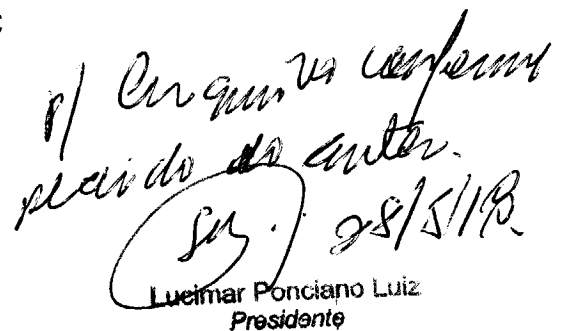 p/ Arquivo conforme
pedido do autor.
28/5/18.
Lucimar Ponciano Luiz
Presidente